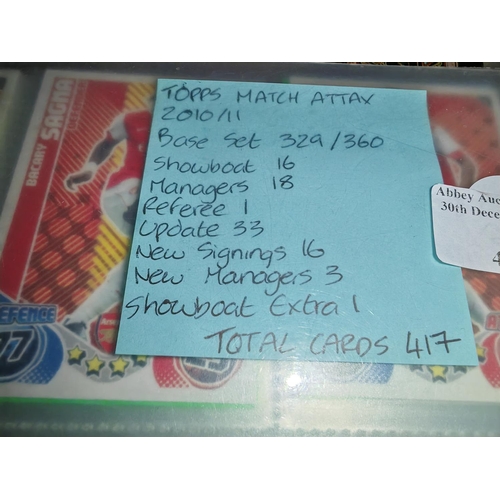 TOPPS MATCH ATTAX
2010/11
Base Set 329/360
Showboat 16
Managers 18
Referee 1
Update 33
New Signings 16
New Managers 3
Showboat Extra 1
TOTAL CARDS 417
BACARY SAGNA
DEFENDER
EFENCE
Abbey Auc
30th Dece
4